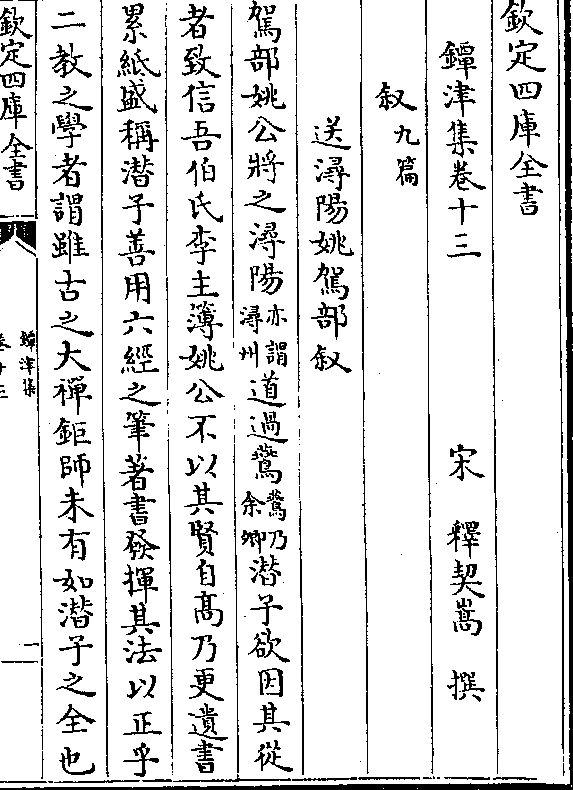 欽定四庫全書
鐔津集卷十三　宋　釋契嵩　撰
叙九篇
送潯陽姚駕部叙
駕部姚公將之潯陽亦謂潯州道過鷟鷟乃余鄉潜子欲因其從
者致信吾伯氏李主簿姚公不以其賢自髙乃更遺書
累紙盛稱潜子善用六經之筆著書發揮其法以正乎
二教之學者謂雖古之大禪鉅師未有如潜子之全也
欽定四庫全書
鐔津集
卷十三
一